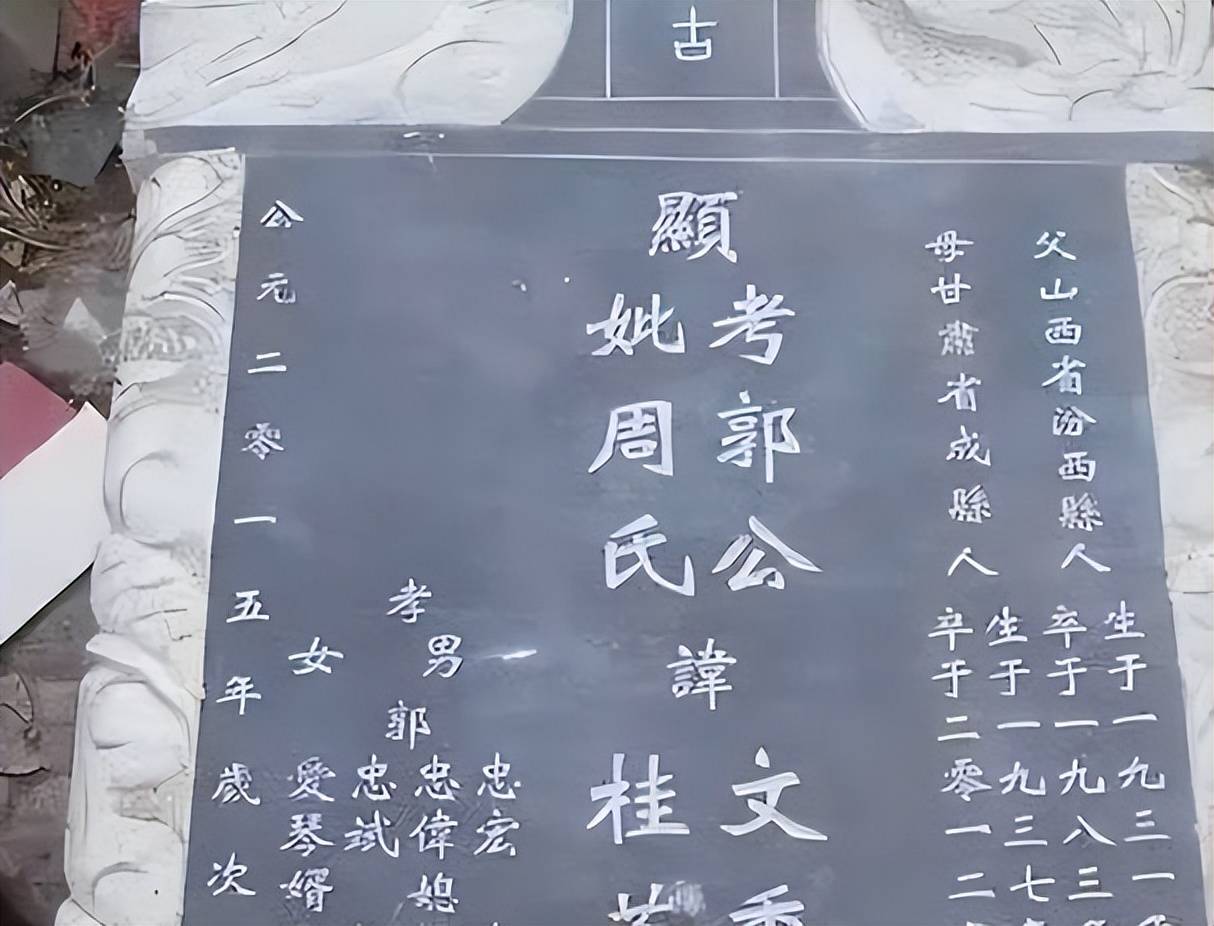 古
父山西省汾西縣人
生于一九三一
卒于一九八三
母甘肅省成縣人
生于一九三七
卒于二零一二
顯
考郭公
妣周氏
諱
文
桂
孝
男
郭
忠宏
忠偉媳
忠斌
女
愛琴婿
公元二零一五年歲次